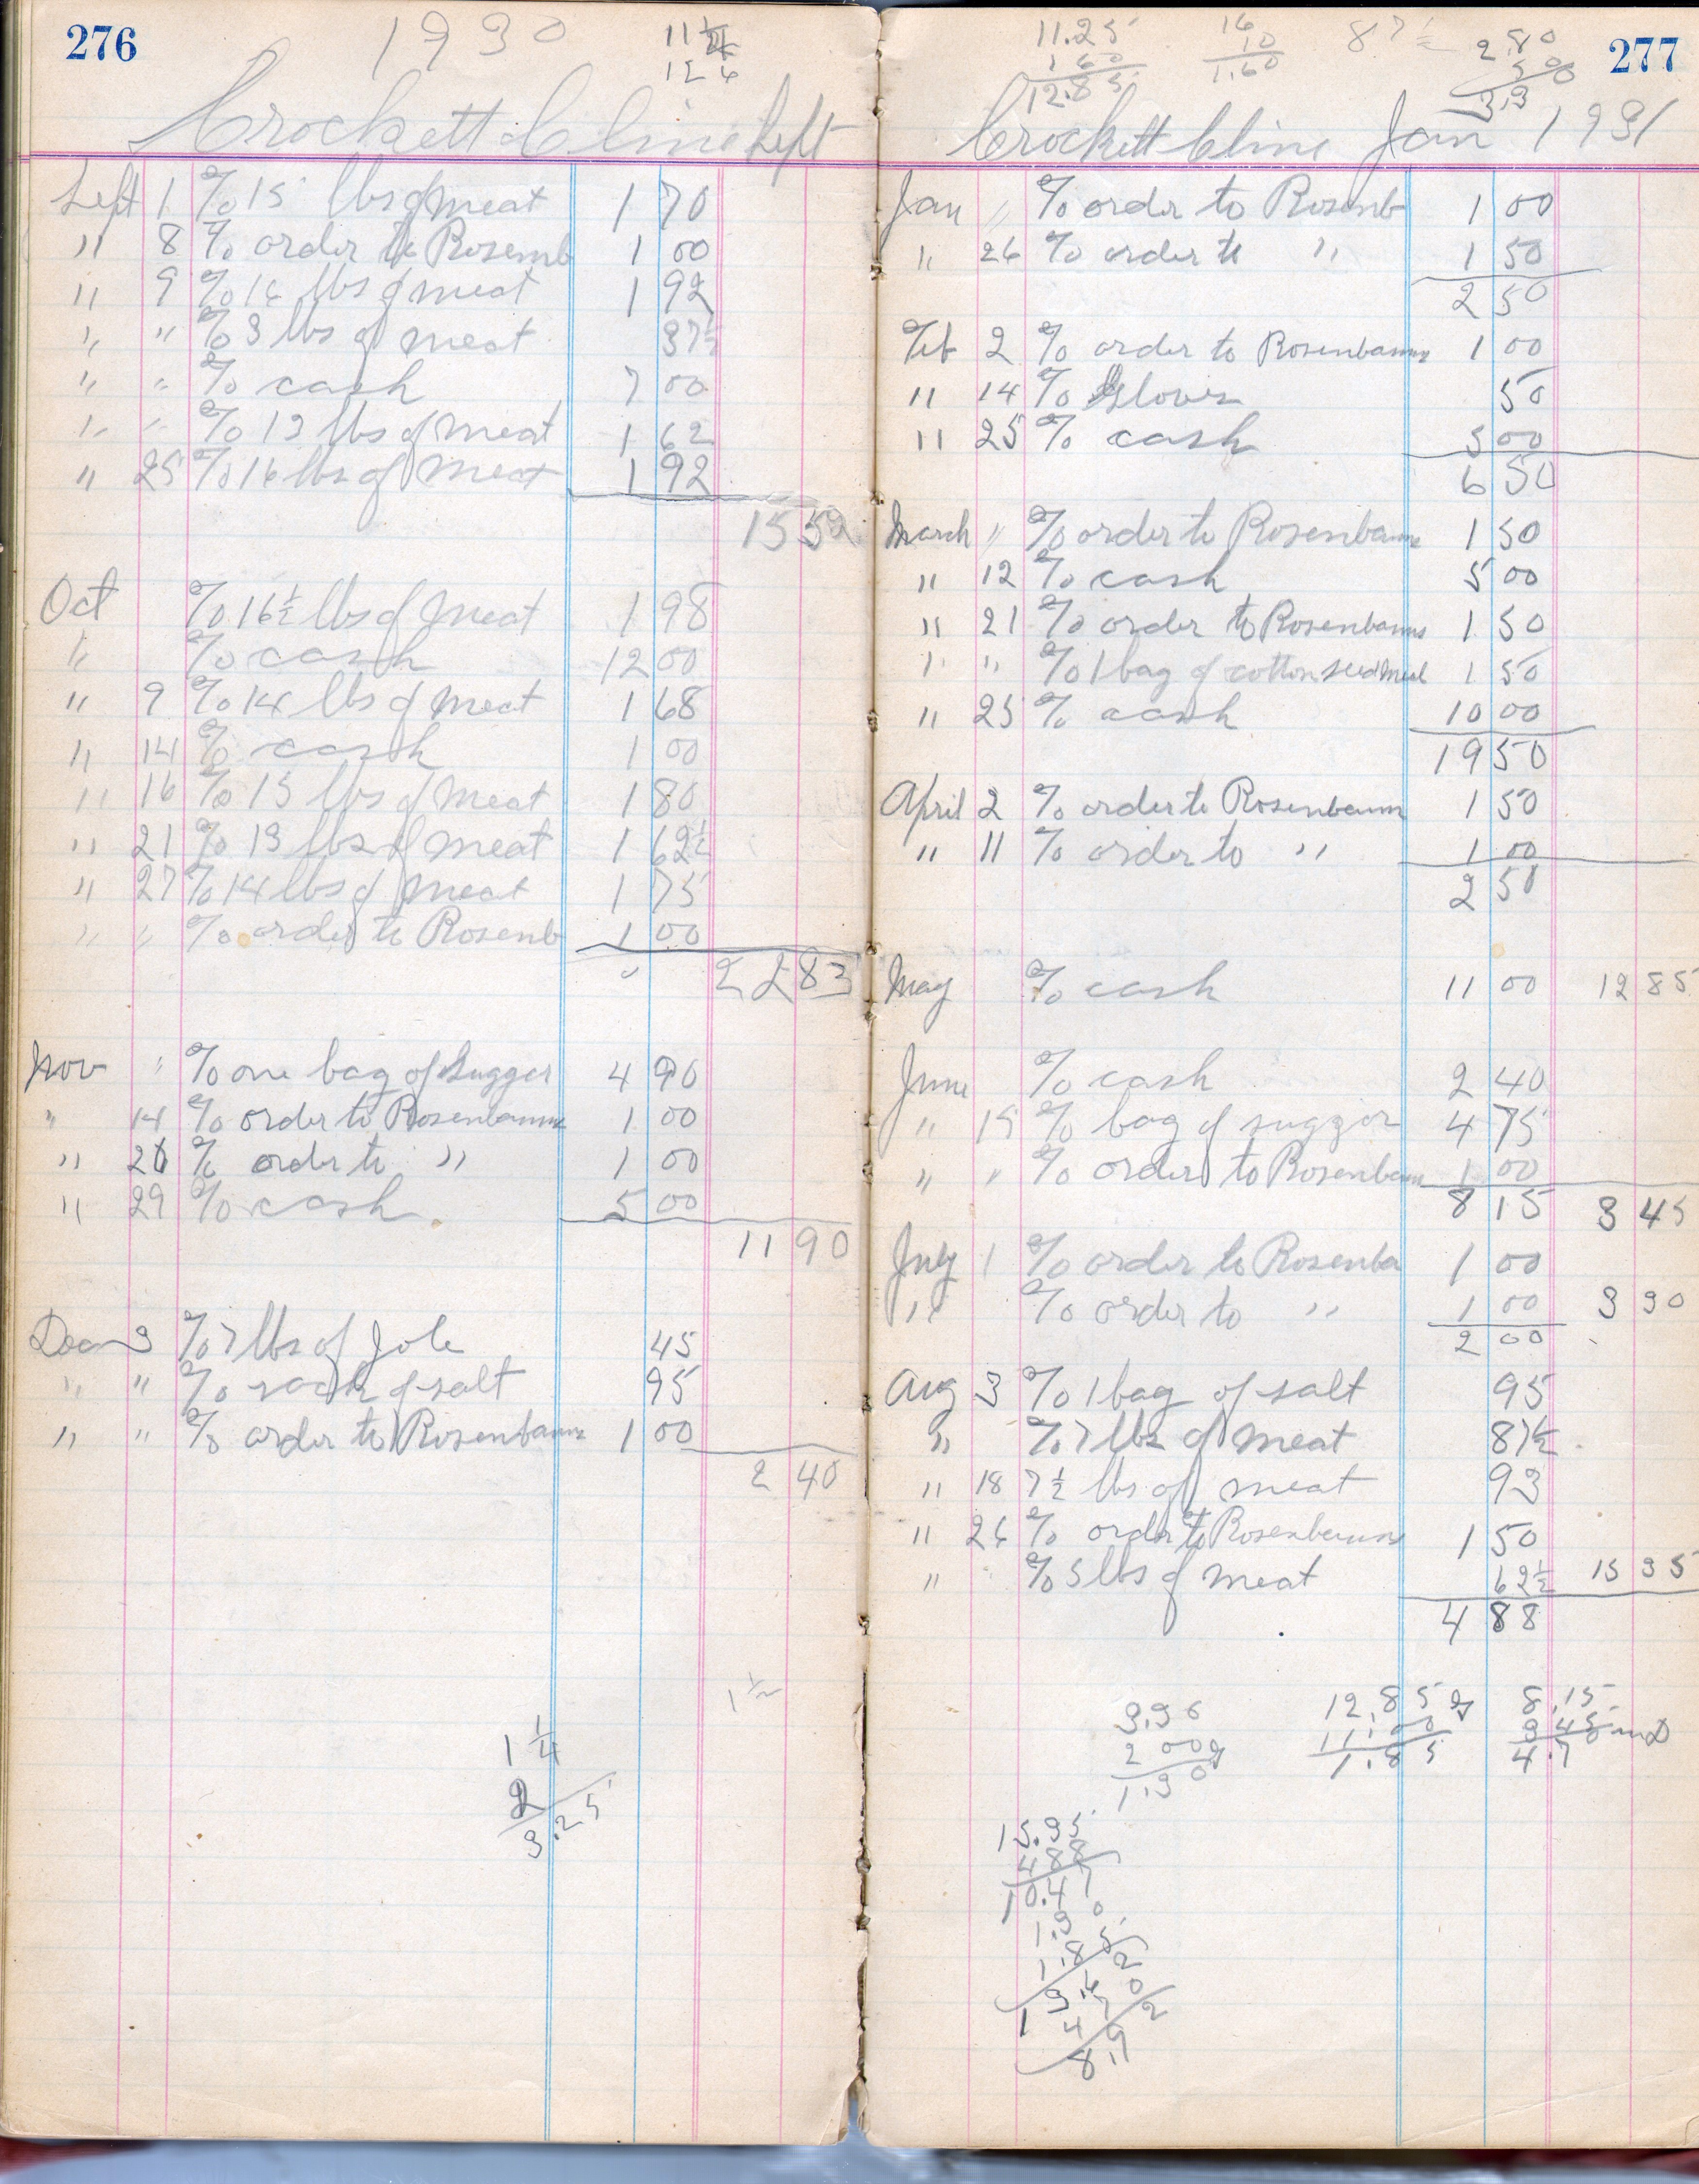 276
1930
11
12 6
Crockett Cline Sept
Sept 1 % 15 lbs of meat 1 70
" 8 % order to Rosemb 1 00
" 9 % 16 lbs of meat 1 92
" " % 3 lbs of meat 37½
" " % cash 7 00
" " % 13 lbs of meat 1 62
" 25 % 16 lbs of meat 1 92
15 52
Oct % 16½ lbs of meat 1 98
" % cash 12 00
" 9 % 14 lbs of meat 1 68
" 14 % cash 1 00
" 16 % 15 lbs of meat 1 80
" 21 % 13 lbs of meat 1 62½
" 27 % 14 lbs of meat 1 75
" " % order to Rosenb 1 00
22 83
Nov " % one bag of Sugger 4 90
" 14 % order to Rosenbaums 1 00
" 26 % order to " 1 00
" 29 % cash 5 00
11 90
Dec 3 % 7 lbs of Jole 45
" " % sack of salt 95
" " % order to Rosenbaums 1 00
2 40
1½
1¼
2
3.25
277
11.25
1 60
12.85
16
10
1.60
87½
2.80
50
3.30
Crockett Cline Jan 1931
Jan " % order to Rosenb 1 00
" 26 % order to " 1 50
2 50
Feb 2 % order to Rosenbaums 1 00
" 14 % Glovs 50
" 25 % cash 5 00
6 50
March " % order to Rosenbaums 1 50
" 12 % cash 5 00
" 21 % order to Rosenbaums 1 50
" " % 1 bag of cotton seed meal 1 50
" 25 % cash 10 00
19 50
April 2 % order to Rosenbaum 1 50
" 11 % order to " 1 00
2 50
May % cash 11 00 12 85
June % cash 2 40
" 15 % bag of suggor 4 75
" " % order to Rosenbaum 1 00
8 15 3 45
July 1 % order to Rosenba 1 00
" % order to " 1 00 3 30
2 00
Aug 3 % 1 bag of salt 95
" % 7 lbs of meat 87½
" 18 7½ lbs of meat 93
" 26 % order to Rosenbaums 1 50
" % 5 lbs of meat 62½ 15 35
4 88
3.30
2 00
1.30
12.85
11.00
1.85
8.15
3 45
4.7
15.35
4 88
10.47
1.30
1.85